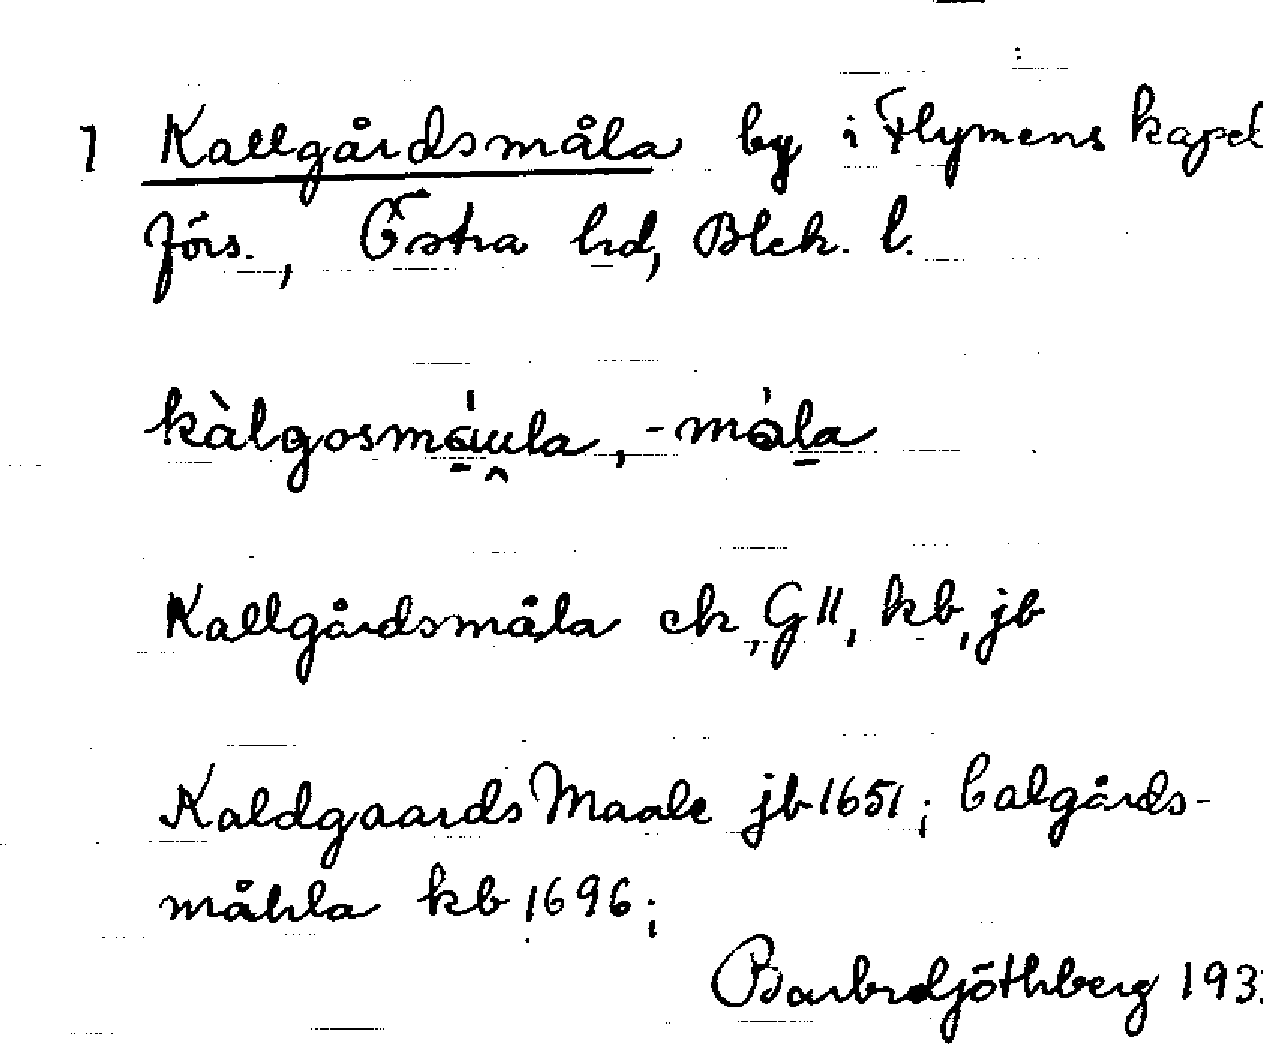 1 Kallgårdsmåla by i Flymens kapel
förs., Östra hd, Blek. l.
kàlgosmá̱u̯la, -må̍la̱
Kallgårdsmåla ek, GII, kb, jb
Kaldgaards Maale jb 1651; Calgårds-
måhla kb 1696;
193